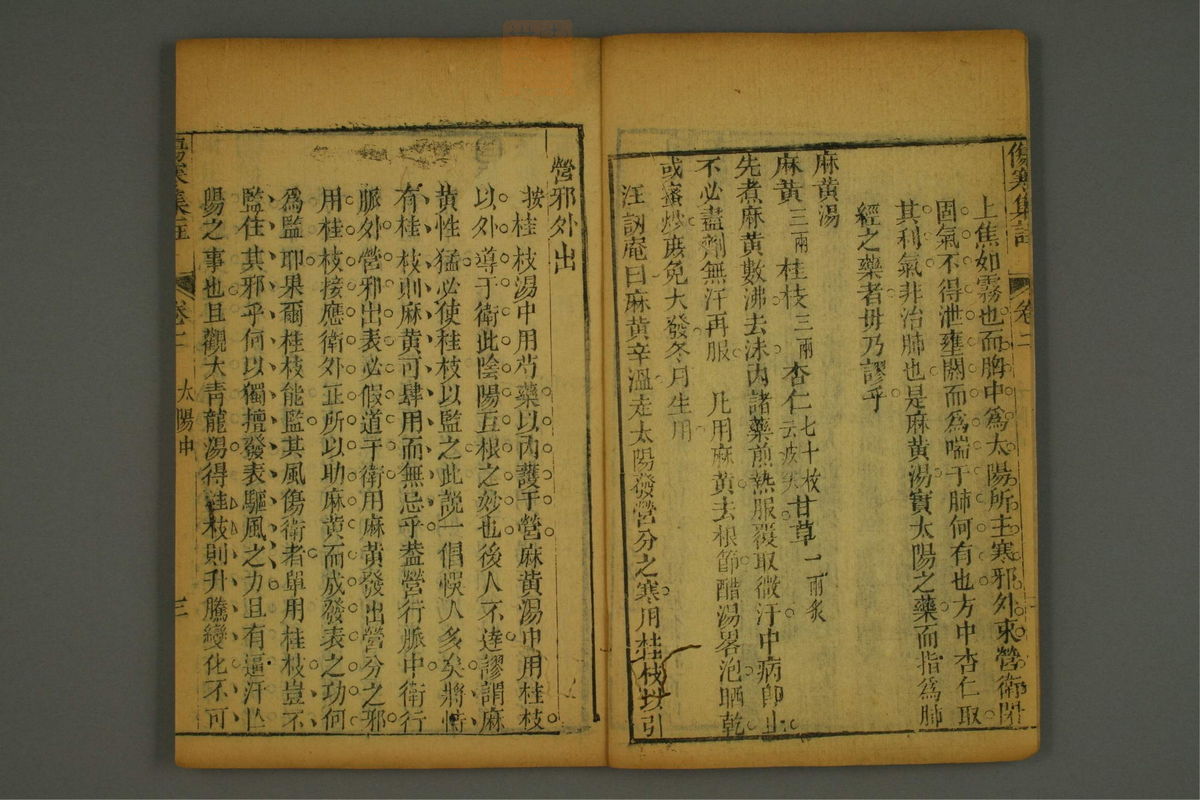 傷寒集註 卷二
上焦如霧也而胸中爲太陽所主寒邪外束營衛閉
固氣不得泄壅闕而爲喘于肺何有也方中杏仁取
其利氣非治肺也是麻黃湯實太陽之藥而指爲肺
經之藥者毋乃謬乎
麻黃湯
麻黃三兩 桂枝三兩 杏仁七十枚去皮尖 甘草二兩炙
先煮麻黃數沸去沫內諸藥煎熱服覆取微汗中病即止
不必盡劑無汗再服 凡用麻黃去根節醋湯畧泡晒乾
或蜜炒庶免大發冬月生用
汪訒庵曰麻黃辛溫走太陽發營分之寒用桂枝以引
營邪外出
按桂枝湯中用芍藥以內護于營麻黃湯中用桂枝
以外導于衛此陰陽互根之妙也後人不達謬謂麻
黃性猛必使桂枝以監之此說一倡悞人多矣將恃
有桂枝則麻黃可肆用而無忌乎葢營行脈中衛行
脈外營邪出表必假道于衛用麻黃發出營分之邪
用桂枝接應衛外正所以助麻黃而成發表之功何
爲監耶果爾桂枝能監其風傷衛者單用桂枝豈不
監住其邪乎何以獨擅發表驅風之力且有逼汗亡
陽之事也且觀大青龍湯得桂枝則升騰變化不可
傷寒集註 卷二 太陽中 三